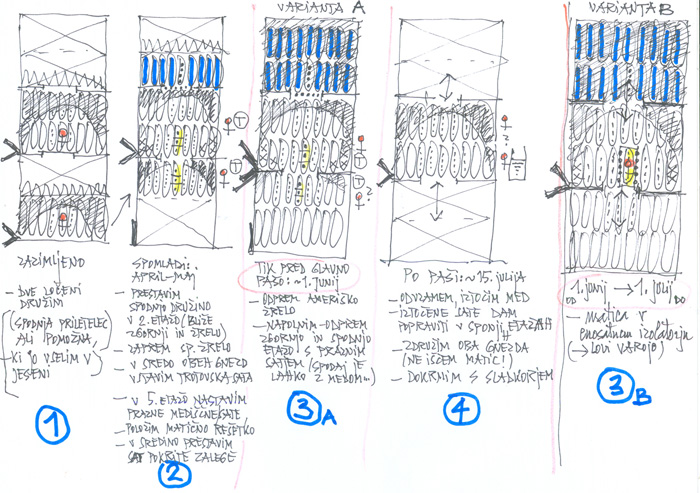 VARIANTA A
VARIANTA B
ZAZIMLJENO
- DVE LOČENI
DRUŽINI
(SPODNJA PRILETELEC
ALI POMOŽNA,
KI JO VSELIM V
JESENI
1
SPOMLADI:
APRIL-MAJ
- PRESTAVIM
SPODNJO DRUŽINO
V 2. ETAŽO (BLIŽE
ZGORNJI IN ŽRELO)
- ZAPREM SP. ŽRELO
- V SREDO OBEH GNEZD
VSTAVIM TROTOVSKA SATA
- V 5. ETAŽO NASTAVIM
PRAZNE MEDIČNE SATE,
- POLOŽIM MATIČNO REŠETKO
- V SREDINO PRESTAVIM
SAT POKRITE ZALEGE
2
TIK PRED GLAVNO
PAŠO: ~1. JUNIJ
- ODPREM AMERIŠKO
ŽRELO
- NAPOLNIM-ODPREM
ZGORNJO IN SPODNJO
ETAŽO S PRAZNIM
SATJEM (SPODAJ JE
LAHKO Z MEDOM...)
3A
PO PAŠI: ~15. JULIJA
- ODVZAMEM, IZTOČIM MED
- IZTOČENE SATE DAM
POPRAVITI V SPODNJI ETAŽAH
- ZDRUŽIM OBA GNEZDA
(NE IŠČEM MATIC!)
- DOKRMIM S SLADKORJEM
4
OD 1. junij → 1. julij DO
- matica v
enosatnem izolatorju
(→ Lovi varojo)
3B